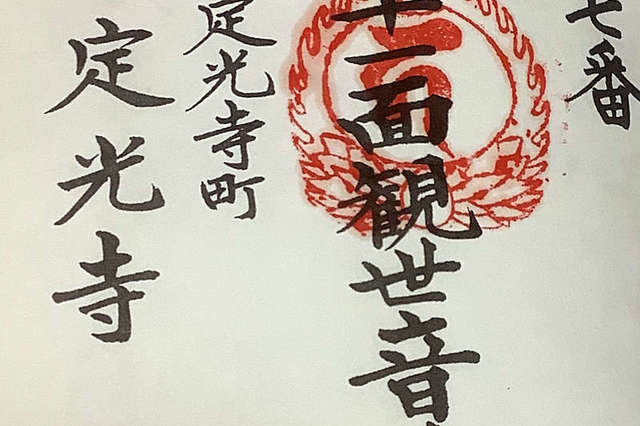 七番
十一面観世音
定光寺町
定光寺